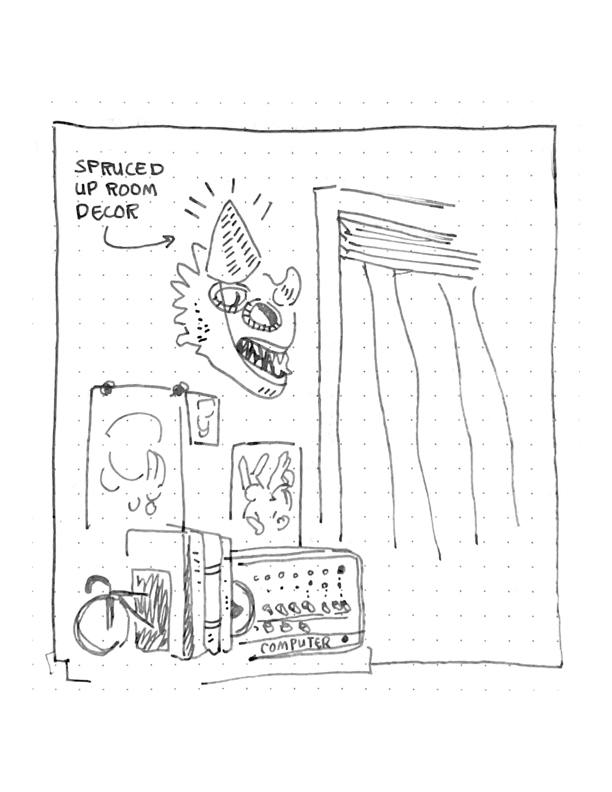 SPRUCED
UP ROOM
DECOR
COMPUTER